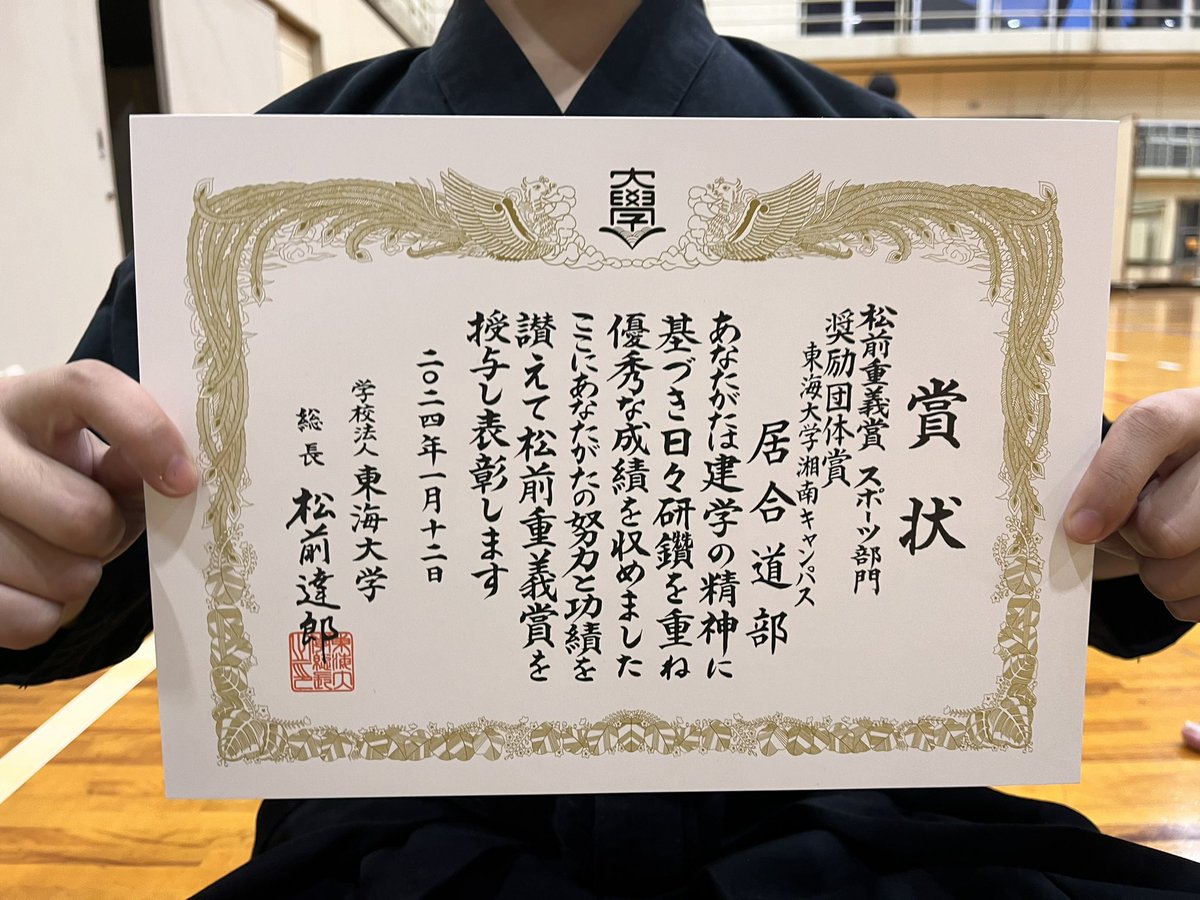 大學
賞状
松前重義賞 スポーツ部門
奨励団体賞
東海大学湘南キャンパス
居合道部
あなたがたは建学の精神に
基づき日々研鑽を重ね
優秀な成績を収めました
ここにあなたがたの努力と功績を
讃えて松前重義賞を
授与し表彰します
二〇二四年一月十二日
学校法人 東海大学
総長 松前達郎